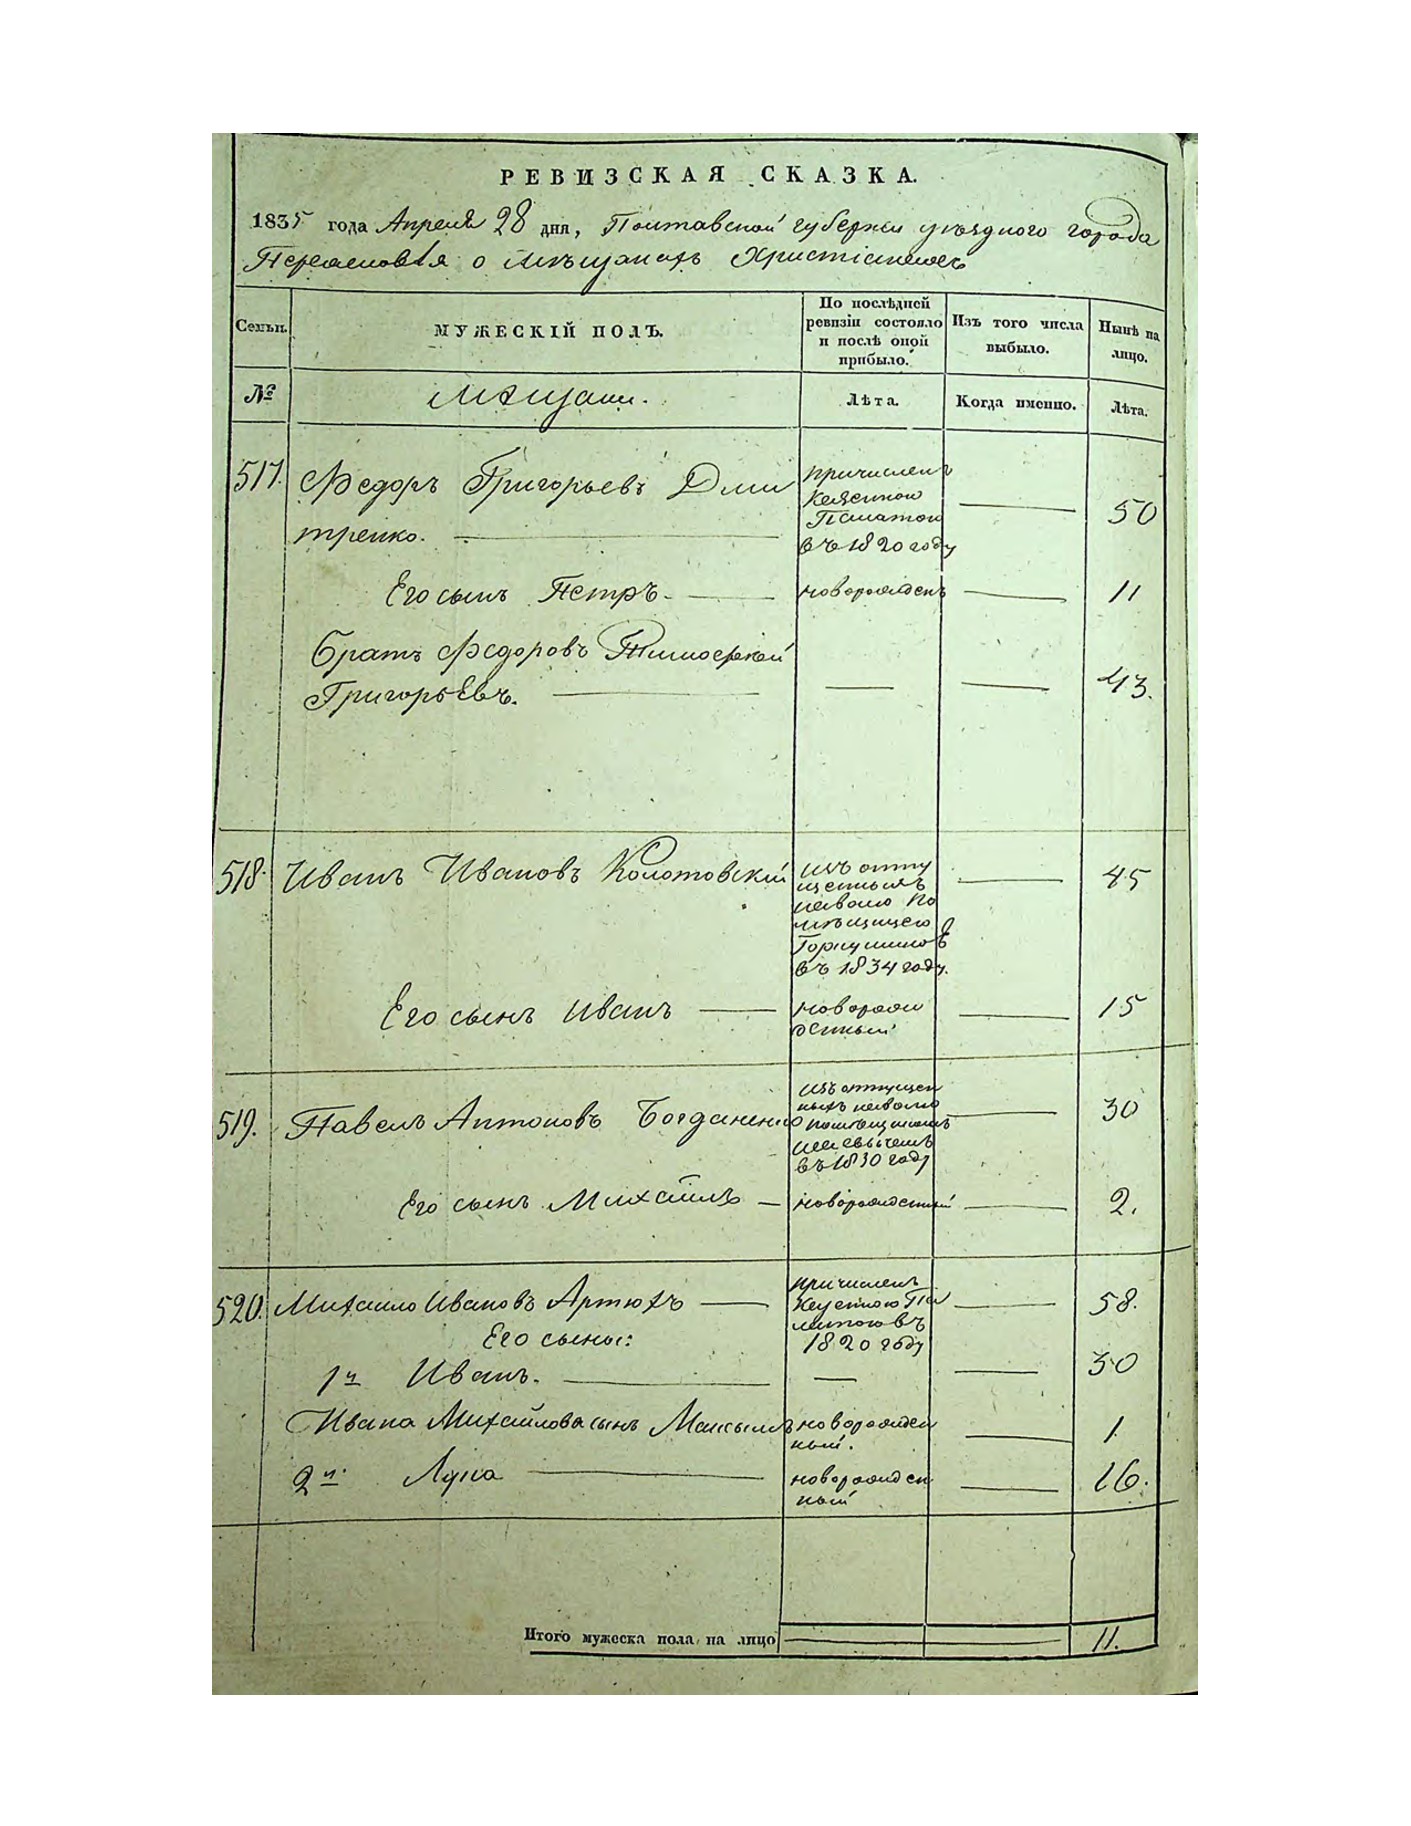 РЕВИЗСКАЯ СКАЗКА.
1835 года Апреля 28 дня, Полтавской губернии уѣзднаго города
Переяслова о мѣщанахъ Христіанахъ
Семьи.
МУЖЕСКІЙ ПОЛЪ.
По послѣдней
ревизіи состояло
и послѣ оной
прибыло.
Изъ того числа
выбыло.
Нынѣ на
лицо.
№
Мѣщани.
Лѣта.
Когда именно.
Лѣта.
517. Федоръ Григорьевъ Дми
тренко.
причисленъ
Казенною
Палатою
въ 1820 году
50
Его сынъ Петръ. новорожденъ 11
Братъ Федоровъ Тимофей
Григорьевъ. 43.
518. Иванъ Ивановъ Колотовскій
изъ отпу
щенныхъ
на волю по
мѣщицею
въ 1834 году.
45
Его сынъ Иванъ
новорож
денный
15
519. Павелъ Антоновъ Богданенко
изъ отпущен
ныхъ на волю
помѣщикомъ
въ 1830 году
30
Его сынъ Михайлъ новорожденный 2.
520. Михайло Ивановъ Артюхъ
причисленъ
Казенною Па
латою въ
1820 году
58.
Его сыны:
1й Иванъ. 30
Ивана Михайлова сынъ Максымъ
новорожден
ный.
1
2й Лука
новорожден
ный
16.
Итого мужеска пола на лицо 11.